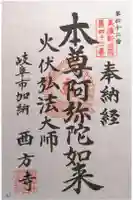 奉納経
第四十二番
本尊阿弥陀如来
火伏弘法大師
岐阜市加納 西方寺